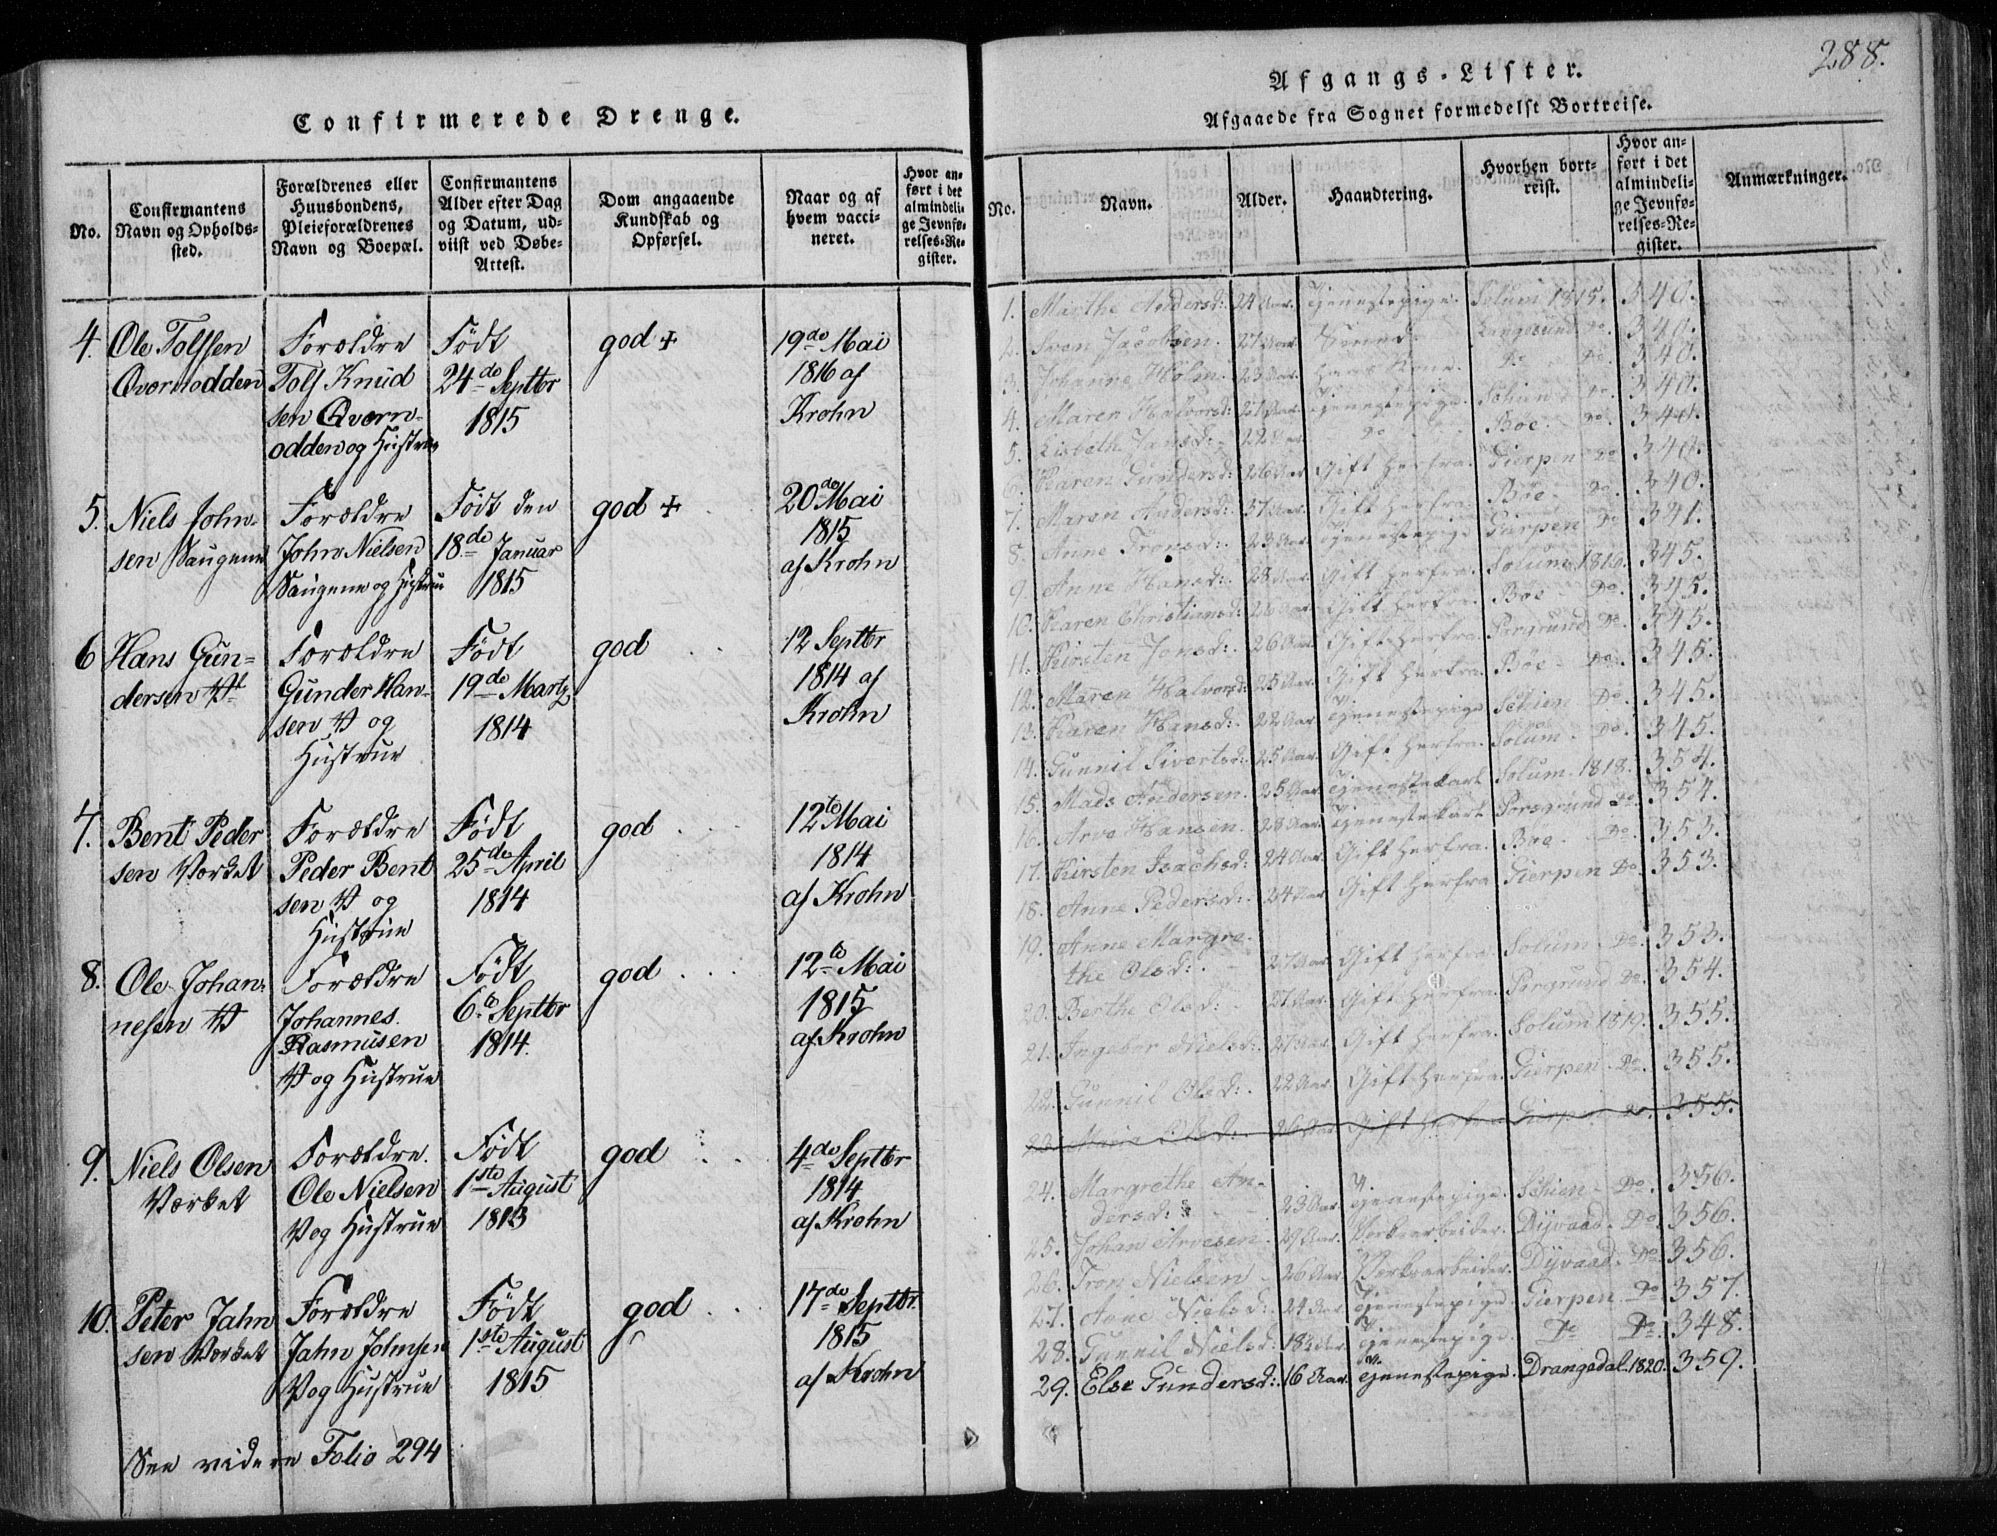 Confirmerede Drenge.
No.
Confirmantens Navn og Opholdssted.
Forældrenes eller Huusbondens, Pleieforældrenes Navn og Boepæl.
Confirmantens Alder efter Dag og Datum, udviist ved Døbe-Attest.
Dom angaaende Kundskab og Opførsel.
Naar og af hvem vaccineret.
Hvor anført i det almindelige Jevnførelses-Register.
4. Ole Tolfsen Forældre Født god + 19de Mai
Qvernodden Tolf Knud 24de Septbr 1816 af
sen Qvern- 1815 Krohn
odden og Hustrue
5. Niels John- Forældre Født den god + 20de Mai
sen John Nielsen 18de Januar 1815
og Hustrue 1815 af Krohn
6 Hans Gun- Forældre Født god 12 Septbr
dersen Gunder Han- 19de Martz 1814 af
sen og 1814 Krohn
Hustrue
7. Bent Peder Forældre Født god 12te Mai
sen Værket Peder Bent 25de April 1814
sen og 1814 af Krohn
Hustrue
8. Ole Johan- Forældre Født god 12te Mai
nesen Johannes 6te Septbr 1815
Rasmusen 1814. af Krohn
og Hustrue
9. Niels Olsen Forældre. Født god 4de Septbr
Værket Ole Nielsen 1ste August 1814
og Hustrue 1813 af Krohn
10. Peter Jahn Forældre Født god 17de Septbr.
sen Værket Jahn Johnsen 1ste August 1815
og Hustrue 1815 af Krohn
See videre Folio 294
288.
Afgangs-Lister.
Afgaaede fra Sognet formedelst Bortreise.
No.
Navn.
Alder.
Haandtering.
Hvorhen bortreist.
Hvor anført i det almindelige Jevnførelses-Register.
Anmærkninger.
1. Marthe Andersd: 24 Aar. Tjenestepige. Solum 1815. 340.
2. Sven Jacobsen. 27 Aar. Langesund Do. 340.
3. Johanne Holm. 23 Aar. Hans Kone. Do Do. 340.
4. Maren Halvorsd: 21 Aar. Tjenestepige. Schien Do. 340.
5. Lisbeth Jansd: 22 Aar. Do Bøe Do. 340.
6. Karen Gundersd: 26 Aar Gift herfra. Gierpen Do 340.
7. Maren Andersd: 37 Aar. Gift herfra. Bøe Do. 340.
8. Anne Tronsd: 23 Aar. Tjenestepige Gierpen Do 341.
9. Anne Hansd: 28 Aar. Gift herfra. Solum 1816. 345.
10. Karen Christiansd: 26 Aar Gift herfra. Bøe Do. 345.
11. Kirsten Jonsd: 26 Aar. Gift herfra. Porsgrund Do. 345.
12. Maren Halvorsd: 25 Aar. Gift herfra. Bøe Do. 345.
13. Karen Hansd: 22 Aar. Tjenestepige Schien Do. 345.
14. Gunnil Sivertsd: 25 Aar. Gift herfra. Solum Do. 345.
15. Mads Andersen. 25 Aar. Tjenestekarl Solum. 1818. 354.
16. Arve Hansen. 28 Aar. Tjenestekarl Porsgrund Do. 354.
17. Kirsten Isachsd: 24 Aar. Gift herfra. Bøe Do. 353.
18. Anne Pedersd: 24 Aar Gift herfra Gierpen Do. 353.
19. Anne Margre-
the Olsd: 27 Aar Gift herfra. Solum Do. 353.
20. Berthe Olsd: 21 Aar. Gift herfra. Porsgrund Do. 354.
21. Ingebor Nielsd: 27 Aar. Gift herfra. Solum 1819. 355.
22. Gunnil Olsd: 22 Aar. Gift herfra. Gierpen Do. 355.
23. Olsd: 26 Aar Gift herfra Do. 355.
24. Margrethe An-
dersd: 23 Aar Tjenestepige. Schien Do. 356.
25. Johan Arvesen. 29 Aar. Værksarbeider. Dÿvaag Do 356.
26. Tron Nielsen 26 Aar. Værksarbeider. Dÿvaag Do 356.
27. Anne Nielsd: 24 Aar. Tjenestepige. Gierpen Do 357.
28. Gunnil Nielsd: 18 Aar Tjenestepige Do Do. 348.
29. Else Gundersd: 16 Aar. Tjenestepige. Drangedal. 1820. 359.